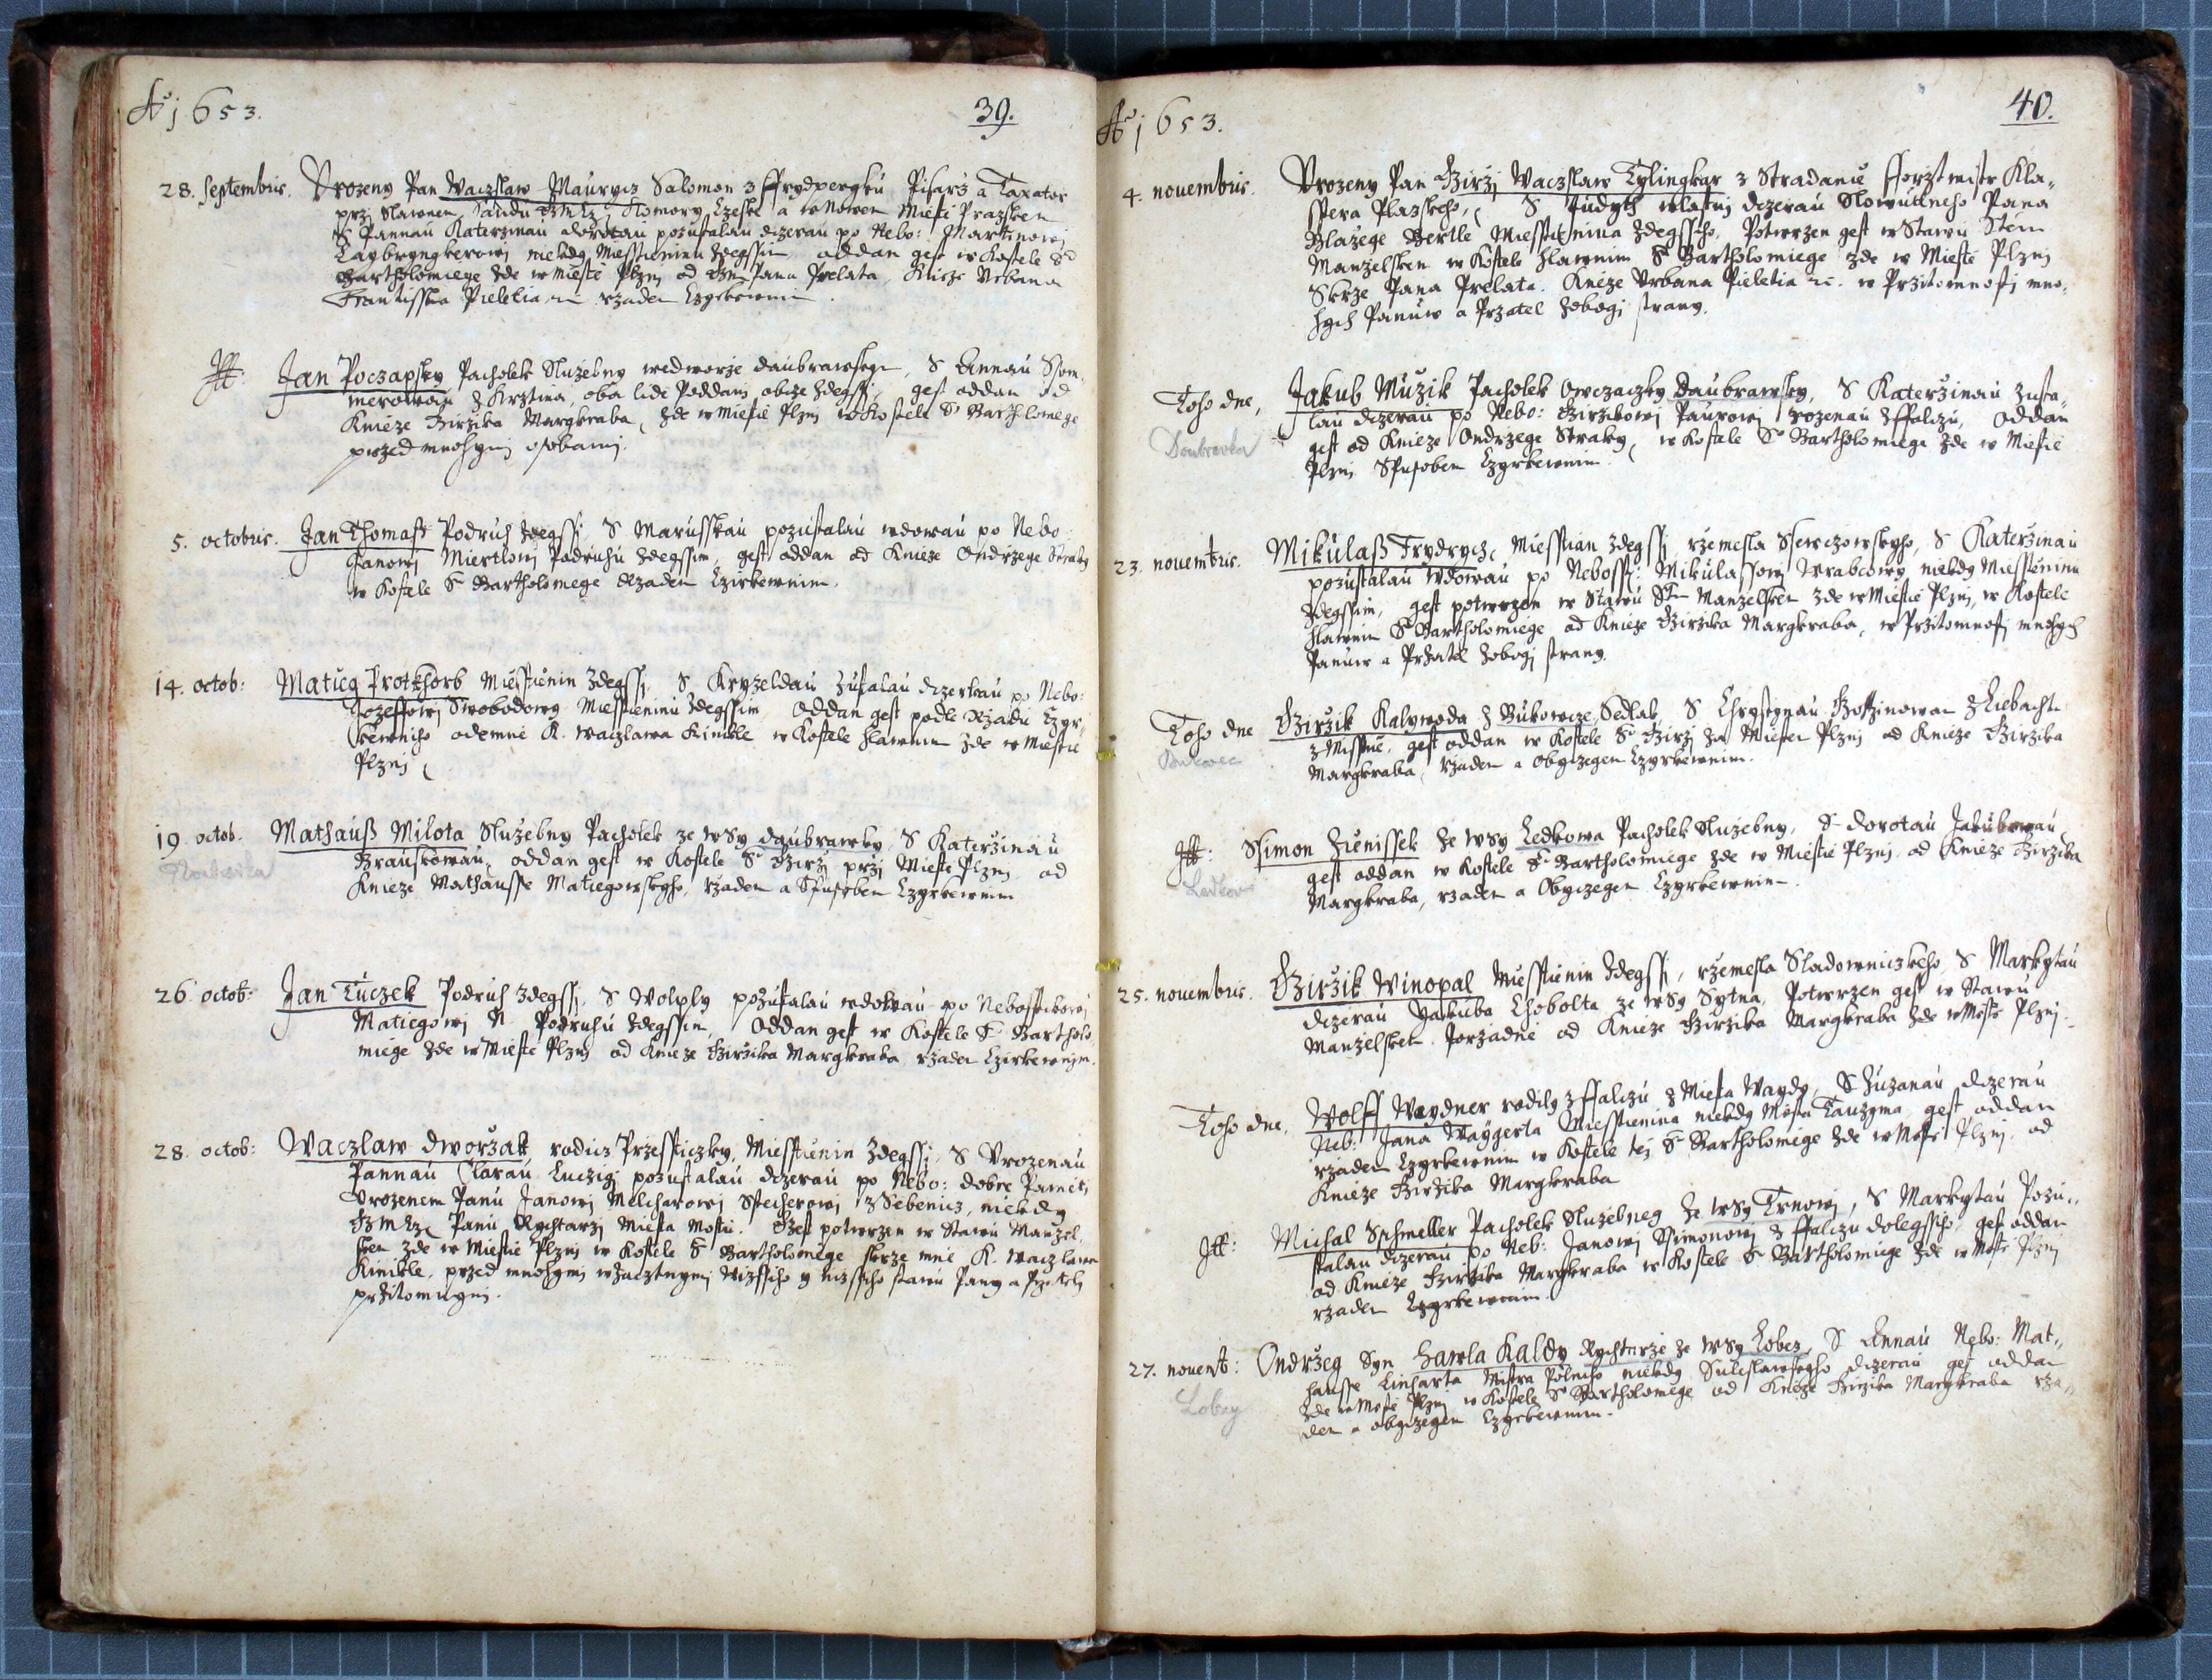 Aº j653.
39.
28. septembris. Vrozeny Pan Waczslaw Maurycz Salomon z Frydpergku Pisarz a Taxator
przj Slawnem Saudu Komory Czeske a w Nowem Miestie Prazskem
S Pannau Katerzinau dorotau pozustalau dczerau po Nebo: Martinowj
niekdy Miesstieninu Zdegssim oddan gest w Kostele Sº
Bartholomiege Zde w Miestie Plznj od Pana Prelata, Knieze Vrbana
Frantisska Pieletia rzadem Czyrkewnim
Itt: Jan Poczapsky Pacholek Sluzebny wedworze daubrawskym, S Annau Ssom„
merowau z Krztina, oba lidi Poddani obcze Zdegssi, gest oddan od
Knieze Girzika Margkraba, Zde w Miestie Plznj w Kostele Sº Bartholomege
przed mnohymj osobamj.
5. octobris. Jan Thomass Podruh Zdegssi S Marusskau pozustalau wdowau po Nebo:
Janowj Miertlowj Podruhu Zdegssim, gest oddan od Knieze Ondrzege Straky
w Kostele Sº Bartholomege Rzadem Czirkewnim.
14. octob: Matieg Protkhorb Miesstienin Zdegssj, S Kryzeldau Zustalau dczerkau po Nebo:
Jozeffowj Swobodowy Miesstieninu Zdegssim, Oddan gest podle Rzadu Czyr„
kewniho odemne K. Waczlawa Kinkle w Kostele hlawnim Zde w Miestie
Plznj
19. octob. Mathauss Milota Sluzebny Pacholek ze wsy daubrawky, S Katerzinau
Brauskowau, oddan gest w Kostele Sº Girzj przj Miestie Plznj od
Knieze Mathausse Matiegowskyho, rzadem a Spusobem Czyrkewnim
26. octob: Jan Tuczek Podruh Zdegssj, S Wolply pozustalau wdowau po Nebosstikowj
Matiegowj N. Podruhu Zdegssim, Oddan gest w Kostele Sº Bartholo
miege Zde w Miestie Plznj od Knieze Girzika Margkraba rzadem Czirkewnjm.
28. octob: Waczlaw Dworzak, rodicz Przessticzky, Miesstienin Zdegssj, S Vrozenau
Pannau Clarau Luczigj pozustalau dczerau po Nebo: dobre Pamieti
Vrozenem Panu Janowj Melcharowj Stecherowj z Sebenicz, niekdy
Panu Rychtarzj Miesta Mostu. Gest potwrzen w Stawu Manzel„
skem Zde w Miestie Plznj w Kostele Sº Bartholomiege skrze mne K. Waczlawa
Kinkle, przed mnohymj wzacztnymj Wizssiho y nizssiho stawu Pany a Przately
przitomnymj.
Aº j653.
40.
4. nouembris. Vrozeny Pan Girzj Waczslaw Tylingkar z Stradanie Fforztmistr Kla„
sstera Plazskeho, S Judyth wlastnj dczerau Slowutneho Pana
Blazege Hertle Miesstienina Zdegssiho, Potwrzen gest w Stawu Stem
Manzelskem w Kostele hlawnim Sº Bartholomiege zde w Miestie Plznj
Skrze Pana Prelata. Knieze Vrbana Pieletia w Przitomnostj mno„
hych Panuw a Przatel Zobogj strany.
Toho dne, Jakub Muzik Pacholek Owczaczky Daubrawsky, S Katerzinau Zusta„
lau dczerau po Nebo: Girzikowj Paurowj rozenau z Ffalczu, Oddan
Doubravka gest od Knieze Ondrzege Straky, w Kostele Sº Bartholomiege Zde w Miestie
Plznj Spusobem Czyrkewnim.
23. nouembris. Mikulass Frydrych, Miesstian Zdegssj rzemesla Ssewczowskyho, S Katerzinau
pozustalau Wdowau po Neboss: Mikulassowj Wrabcowy niekdy Miesstieninu
Zdegssim, gest potwrzen w Stawu Stem Manzelskem Zde w Miestie Plznj, w Kostele
hlawnim Sº Bartholomiege od Knieze Girzika Margkraba, w Przitomnostj mnohych
Panuw a Przatel Zobogj strany.
Toho dne Girzik Kalywoda z Bukowcze Sedlak, S Chrystynau z Liebachtu
Bukovec z Missnie, gest oddan w Kostele Sº Girzj za Miestem Plznj od Knieze Girzika
Margkraba, Rzadem a Obyczegem Czyrkewnim.
Itt: Ssimon Zienissek Ze wsy Ledkowa Pacholek Sluzebny, S dorotau Jakubowau
gest oddan w Kostele Sº Bartholomiege Zde w Miestie Plznj od Knieze Girzika
Ledkov Margkraba, rzadem a Obyczegem Czyrkewnim.
25. nouembris. Girzik Winopal Miesstienin Zdegssj, rzemesla Sladowniczkeho, S Markytau
dczerau Jakuba Chobolta ze wsy Sytna, Potwrzen gest w Stawu
Manzelskem. Porzadnie od Knieze Girzika Margkraba Zde w Miestie Plznj.
Toho dne, Wolff Waydner rodily z Ffalczu z Miesta Waydy, S Zuzanau dczerau
Neb: Jana Waygerta Miesstienina niekdy Miesta Tauzyma, gest oddan
rzadem Czyrkewnim w Kostele tez Sº Bartholomiege Zde w Miestie Plznj od
Knieze Girzika Margkraba
Itt: Michal Schmeller Pacholek Sluzebneg Ze wsy Trnowj, S Markytau Pozu„
stalau dczerau po Neb: Janowj Ssimonowj z Ffalczu dolegssiho, gest oddan
od Knieze Girzika Margkraba w Kostele Sº Bartholomiege Zde w Miestie Plznj
rzadem Czyrkewnim.
27. nouemb: Ondrzeg Syn Hawla Kaldy Rychtarze ze wsy Lobez, S Annau Nebo: Mat„
hausse Linharta Mistra Polniho niekdy Suleslawskyho dczerau gest oddan
Lobzy Zde w Miestie Plznj w Kostele Sº Bartholomiege od Knieze Girzika Margkraba rza„
dem a obyczegem Czyrkewnim.